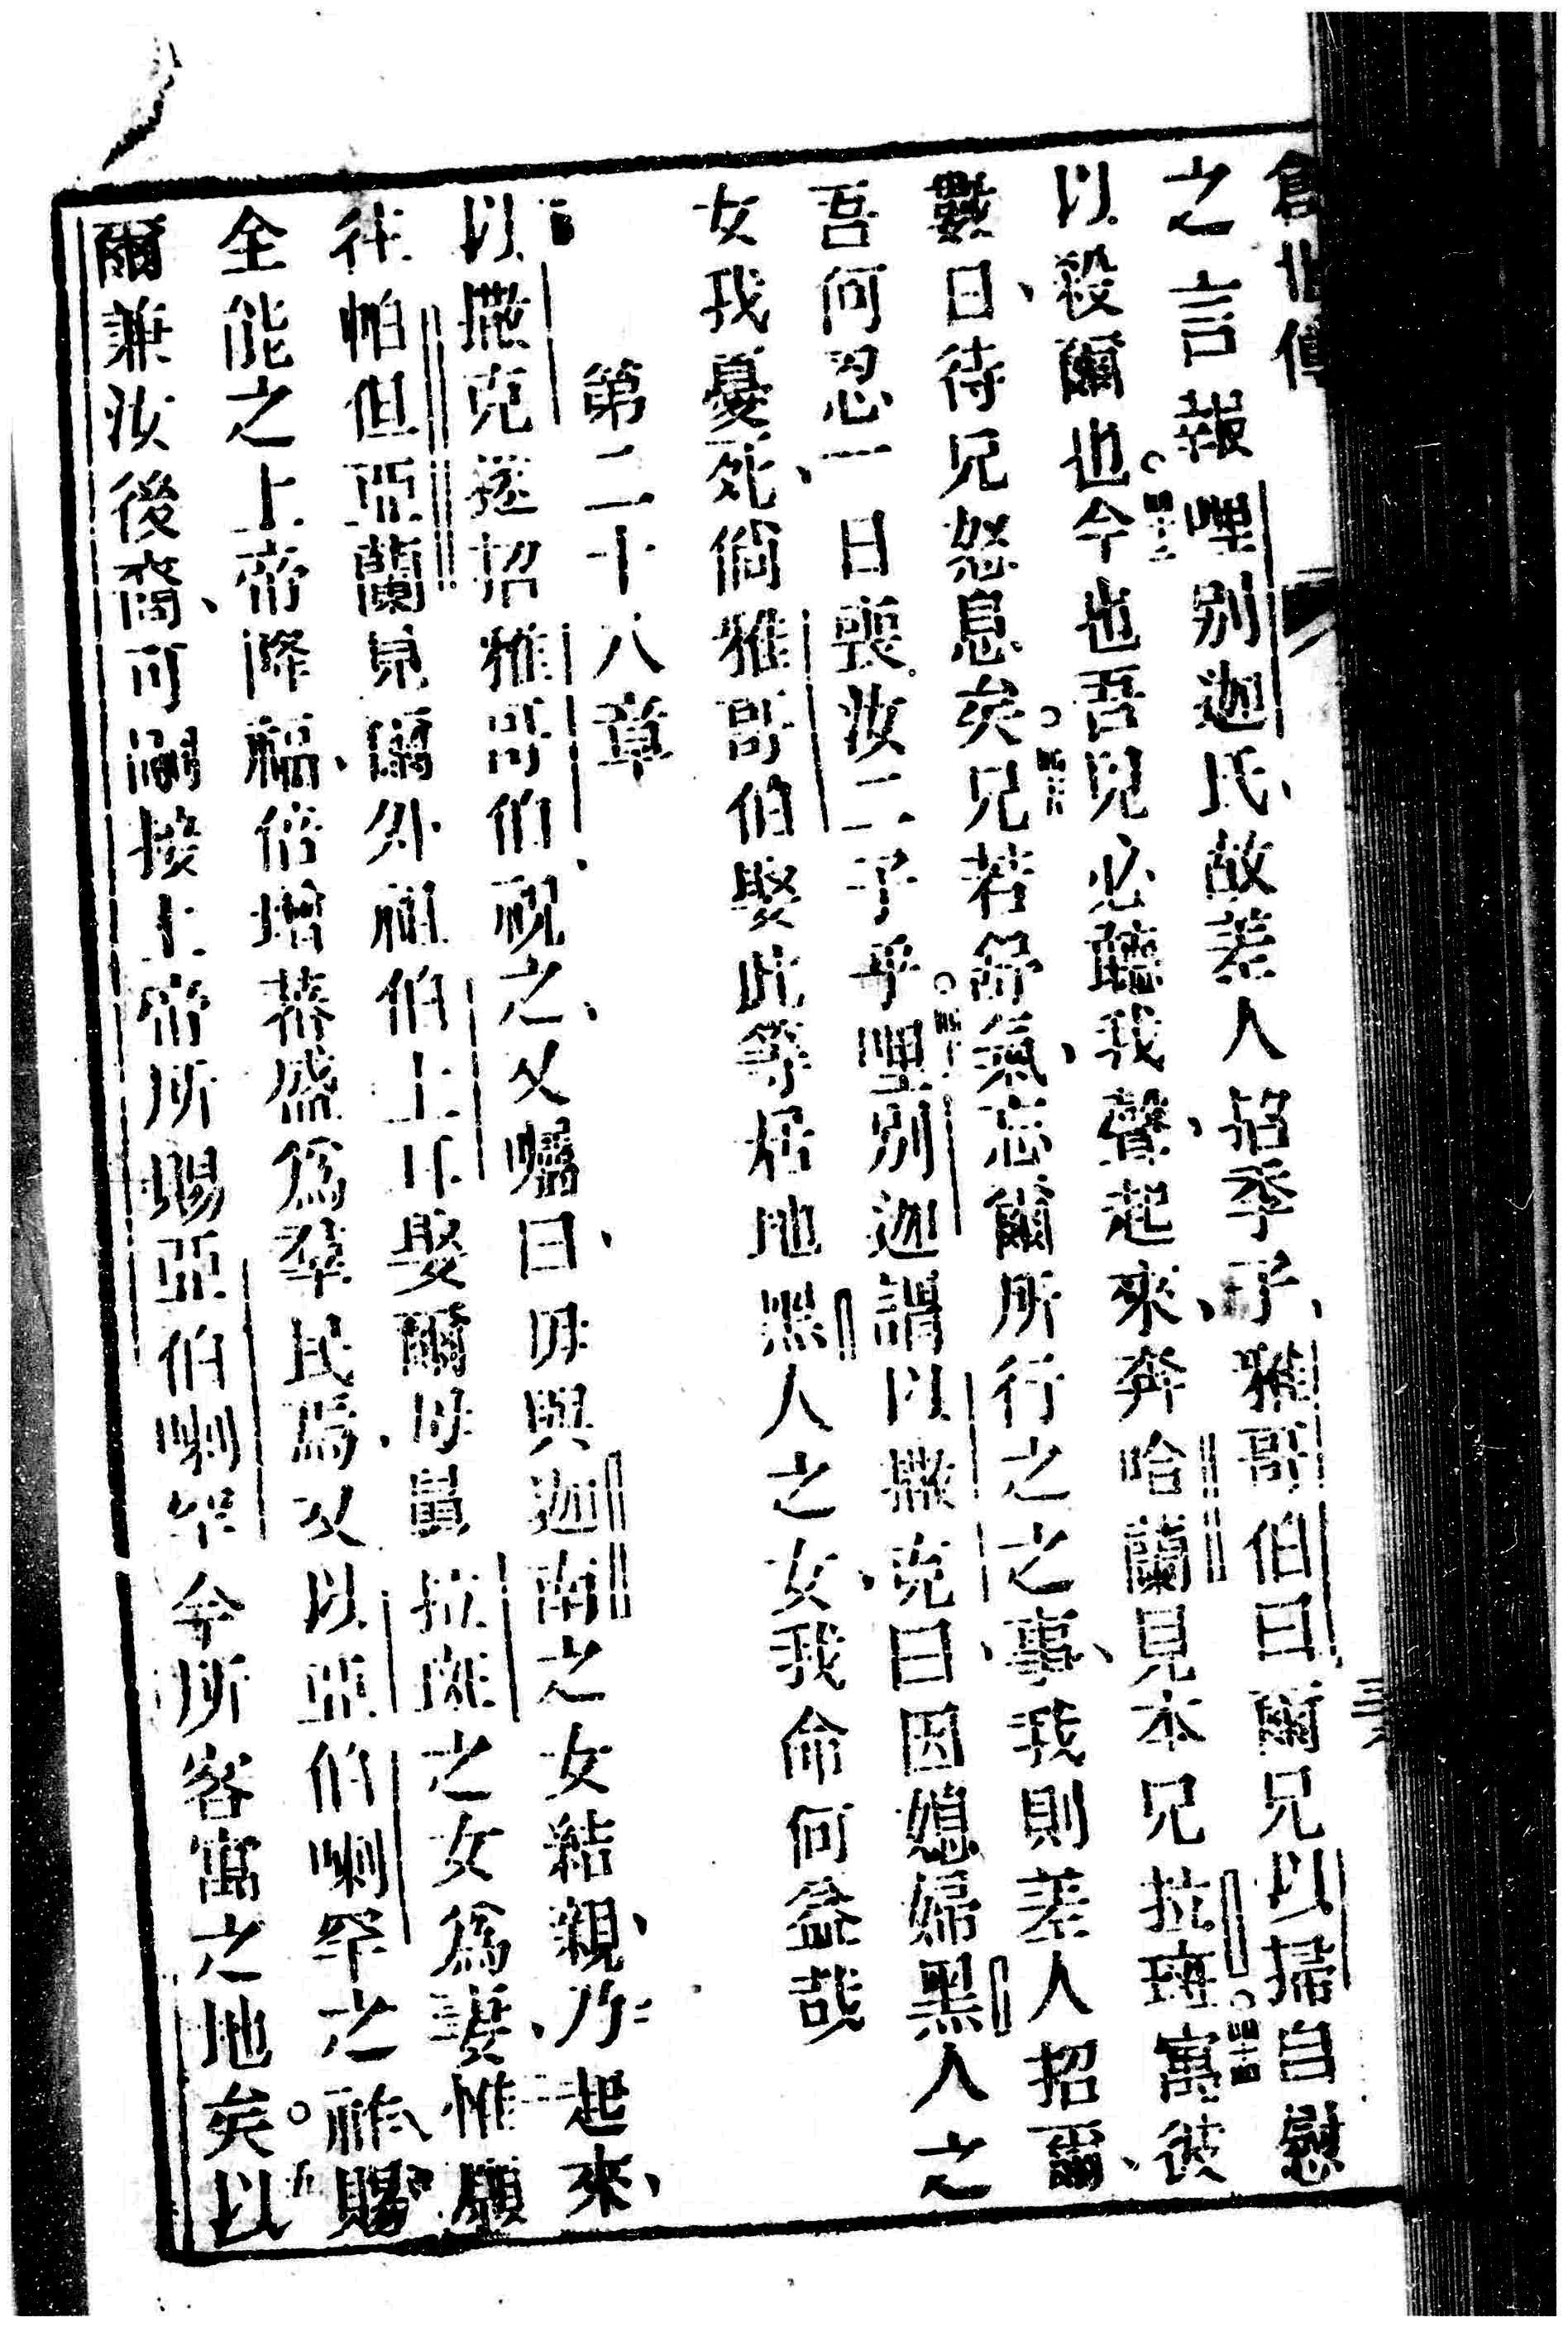 創世傳
之言報哩别迦氏、故差人招季子、雅哥伯曰、爾兄以掃自慰
以殺爾也。四十三今也吾兒必聽我聲、起來、奔哈蘭見本兄拉班。四十四寓彼
數日、待兄怒息矣。四十五兄若舒氣、忘爾所行之之事、我則差人招爾、
吾何忍一日喪汝二子乎。四十六哩別迦謂以撒克曰、因媳婦黑人之
女我憂死、倘雅哥伯娶此等居地黑人之女、我命何益哉
第二十八章
一以撒克遂招雅哥伯、祝之、又囑曰、毋與迦南之女結親、二乃起來、
往帕但亞蘭見爾外祖伯土耳娶爾母舅拉班之女爲妻、三惟願
全能之上帝降福、倍增蕃盛爲羣民焉、四又以亞伯喇罕之祚、賜
爾兼汝後裔、可嗣接上帝所賜亞伯喇罕今所客寓之地矣。五以